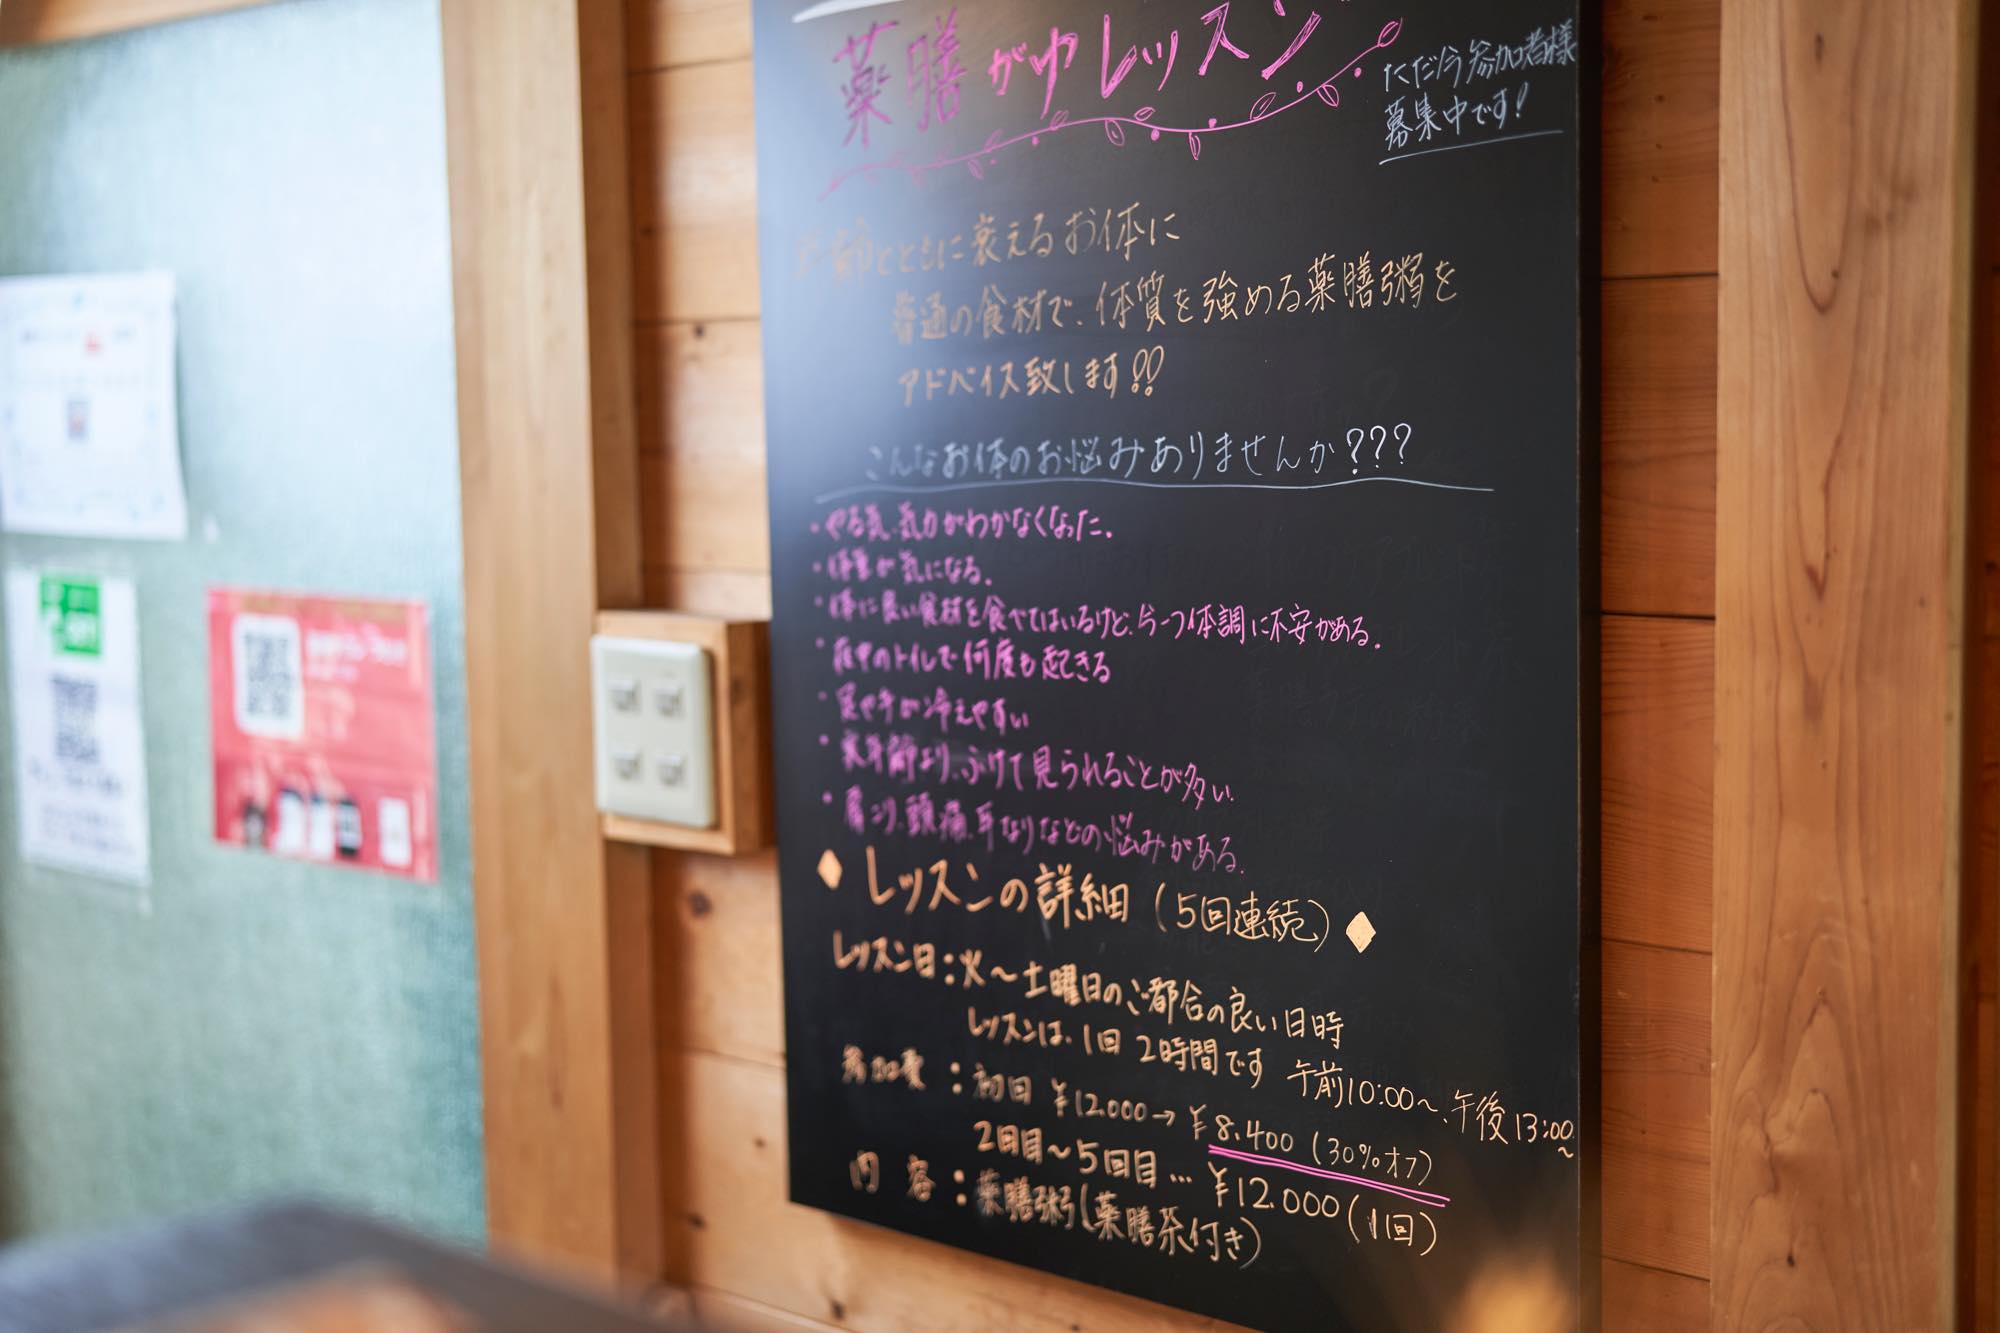 薬膳がゆレッスン
ただ今参加者様
募集中です!
季節とともに衰えるお体に
普通の食材で、体質を強める薬膳粥を
アドバイス致します!!
こんなお体のお悩みありませんか???
・やる気、気力がわかなくなった。
・体重が気になる。
・体に良い食材を食べてはいるけど、今一つ体調に不安がある。
・夜中のトイレで何度も起きる
・足や手が冷えやすい
・実年齢より、ふけて見られることが多い。
・肩こり、頭痛、耳なりなどの悩みがある。
◆レッスンの詳細(5回連続)◆
レッスン日:火〜土曜日のご都合の良い日時
レッスンは、1回2時間です 午前10:00〜、午後13:00〜
参加費:初回 ¥12.000→¥8.400(30%オフ)
2回目〜5回目…¥12.000(1回)
内容:薬膳粥(薬膳茶付き)